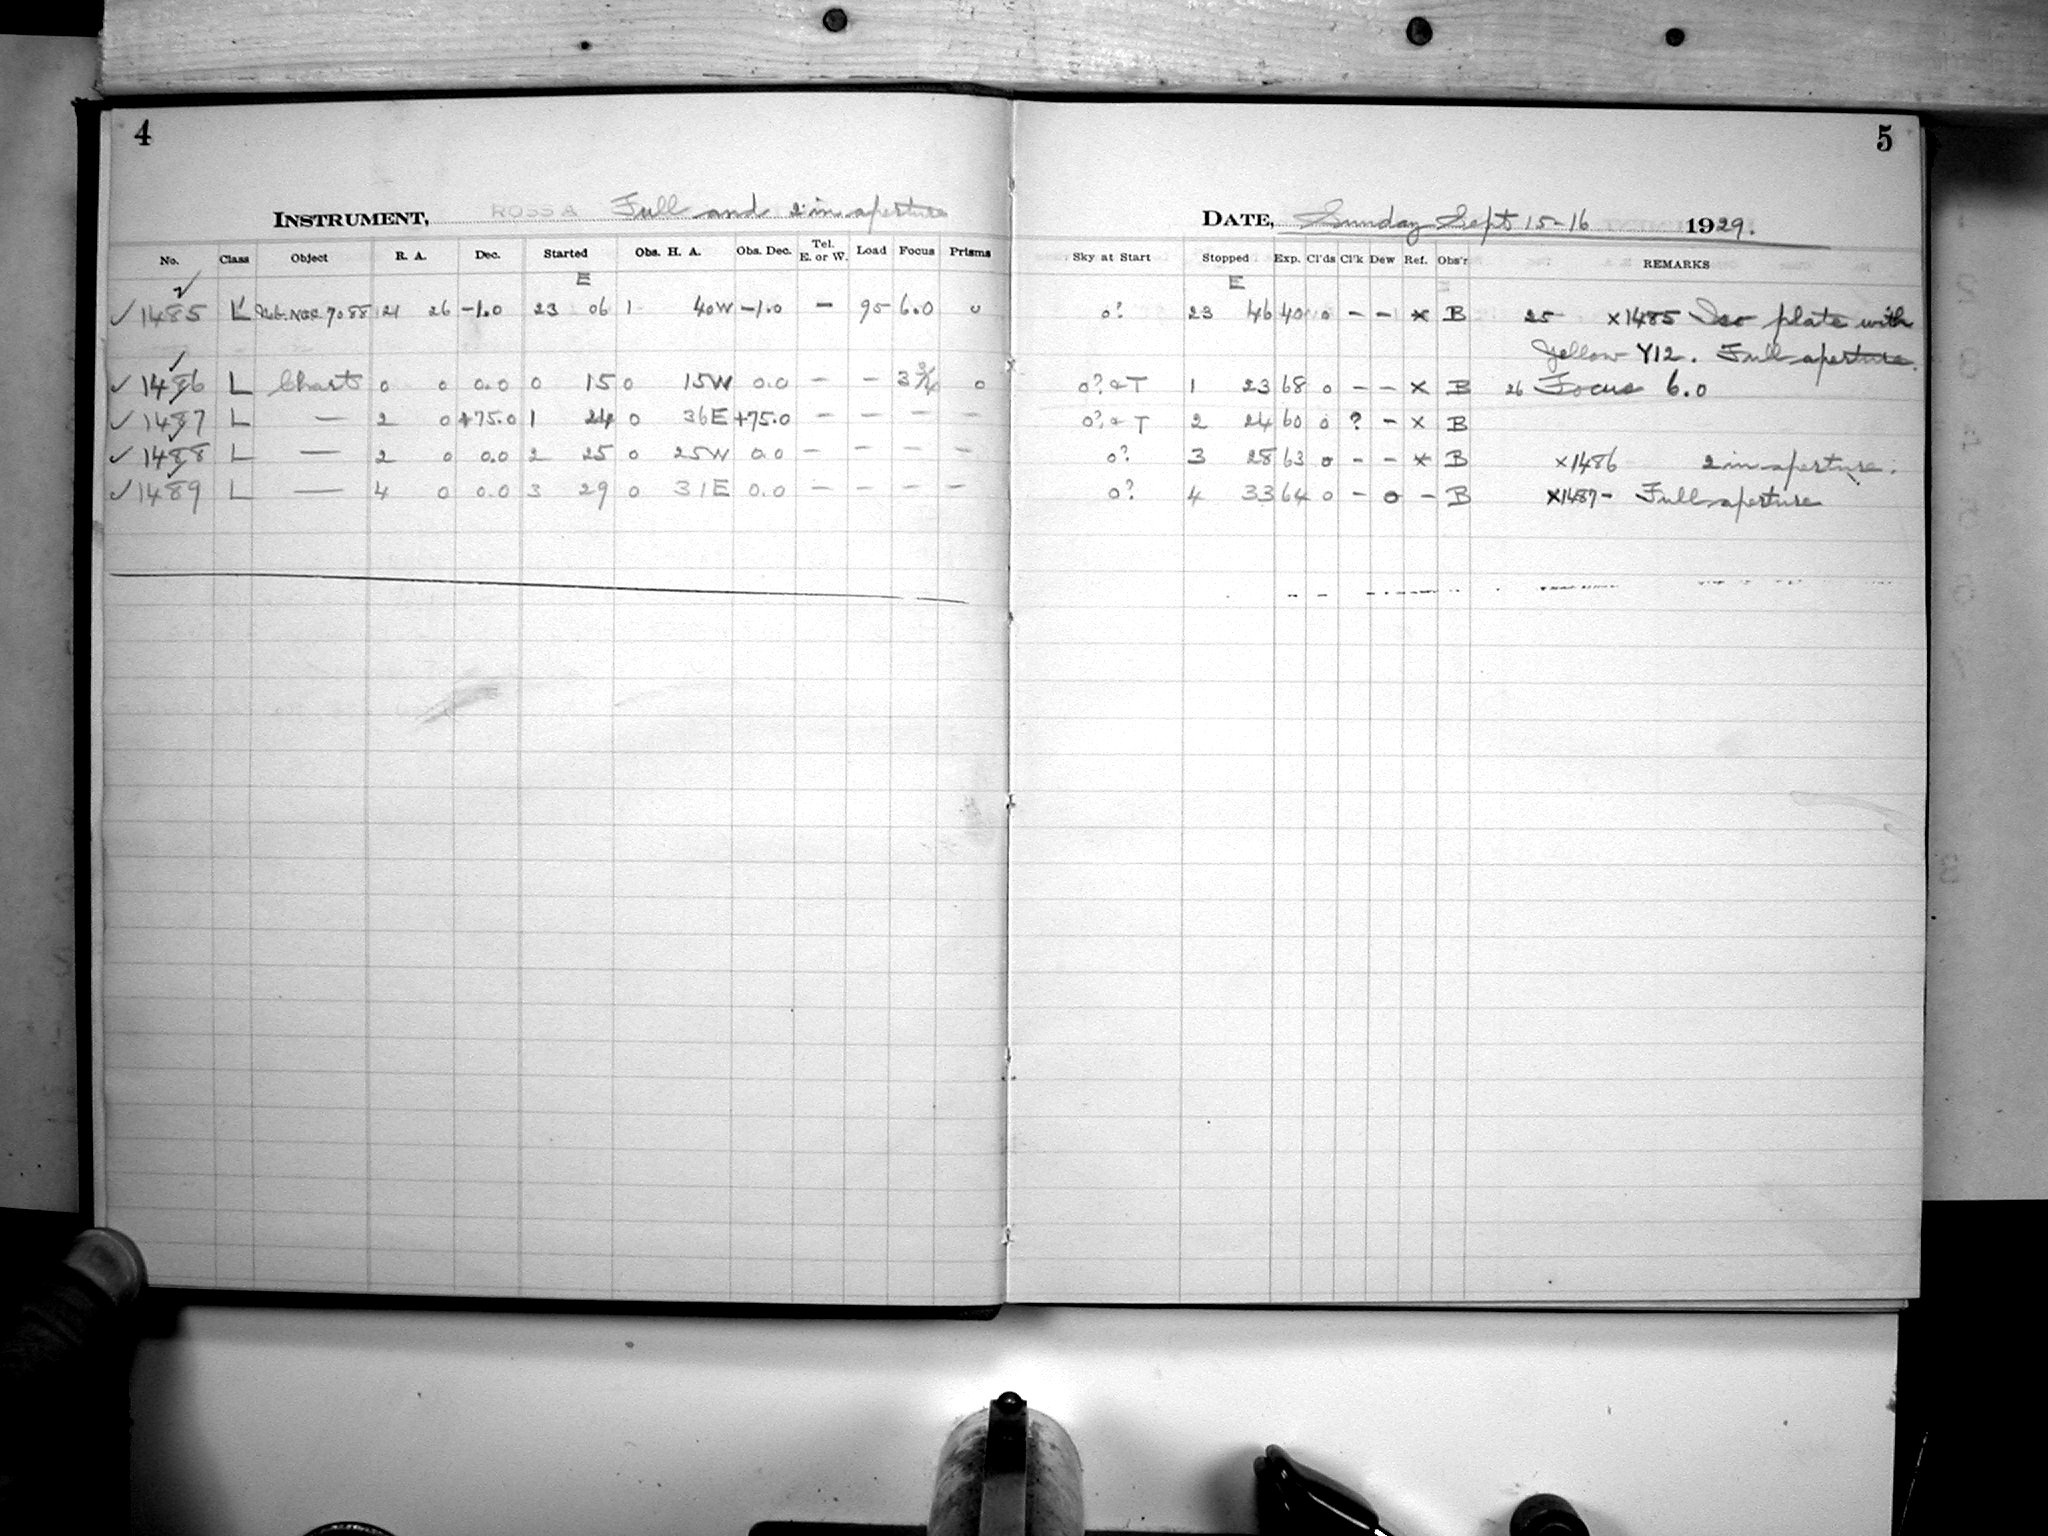 4
INSTRUMENT, ROSS A Full and 2 in aperture
No. Class Object R. A. Dec. Started Obs. H. A. Obs. Dec. Tel. E. or W. Load Focus Prisms
E
✓ 1485 L NGC 7088 21 26 -1.0 23 06 1 40W -1.0 - 95 6.0 0
✓ 1486 L Chart 0 0 0.0 0 15 0 15W 0.0 - - 0
✓ 1487 L — 2 0 +75.0 1 24 0 36E +75.0 - - - -
✓ 1488 L — 2 0 0.0 2 25 0 25W 0.0 - - - -
✓ 1489 L — 4 0 0.0 3 29 0 31E 0.0 - - - -
5
DATE, Sunday Sept 15-16 1929.
Sky at Start Stopped Exp. Cl'ds Cl'k Dew Ref. Obs'r REMARKS
E
0? 23 46 40 0 - - x B 25 x1485 Iso plate with
Yellow Y12. Full aperture.
0? & T 1 23 68 0 - - x B 26 Focus 6.0
0? & T 2 24 60 0 ? - x B
0? 3 28 63 0 - - x B x1486 2 in aperture.
0? 4 33 64 0 - 0 - B x1487- Full aperture